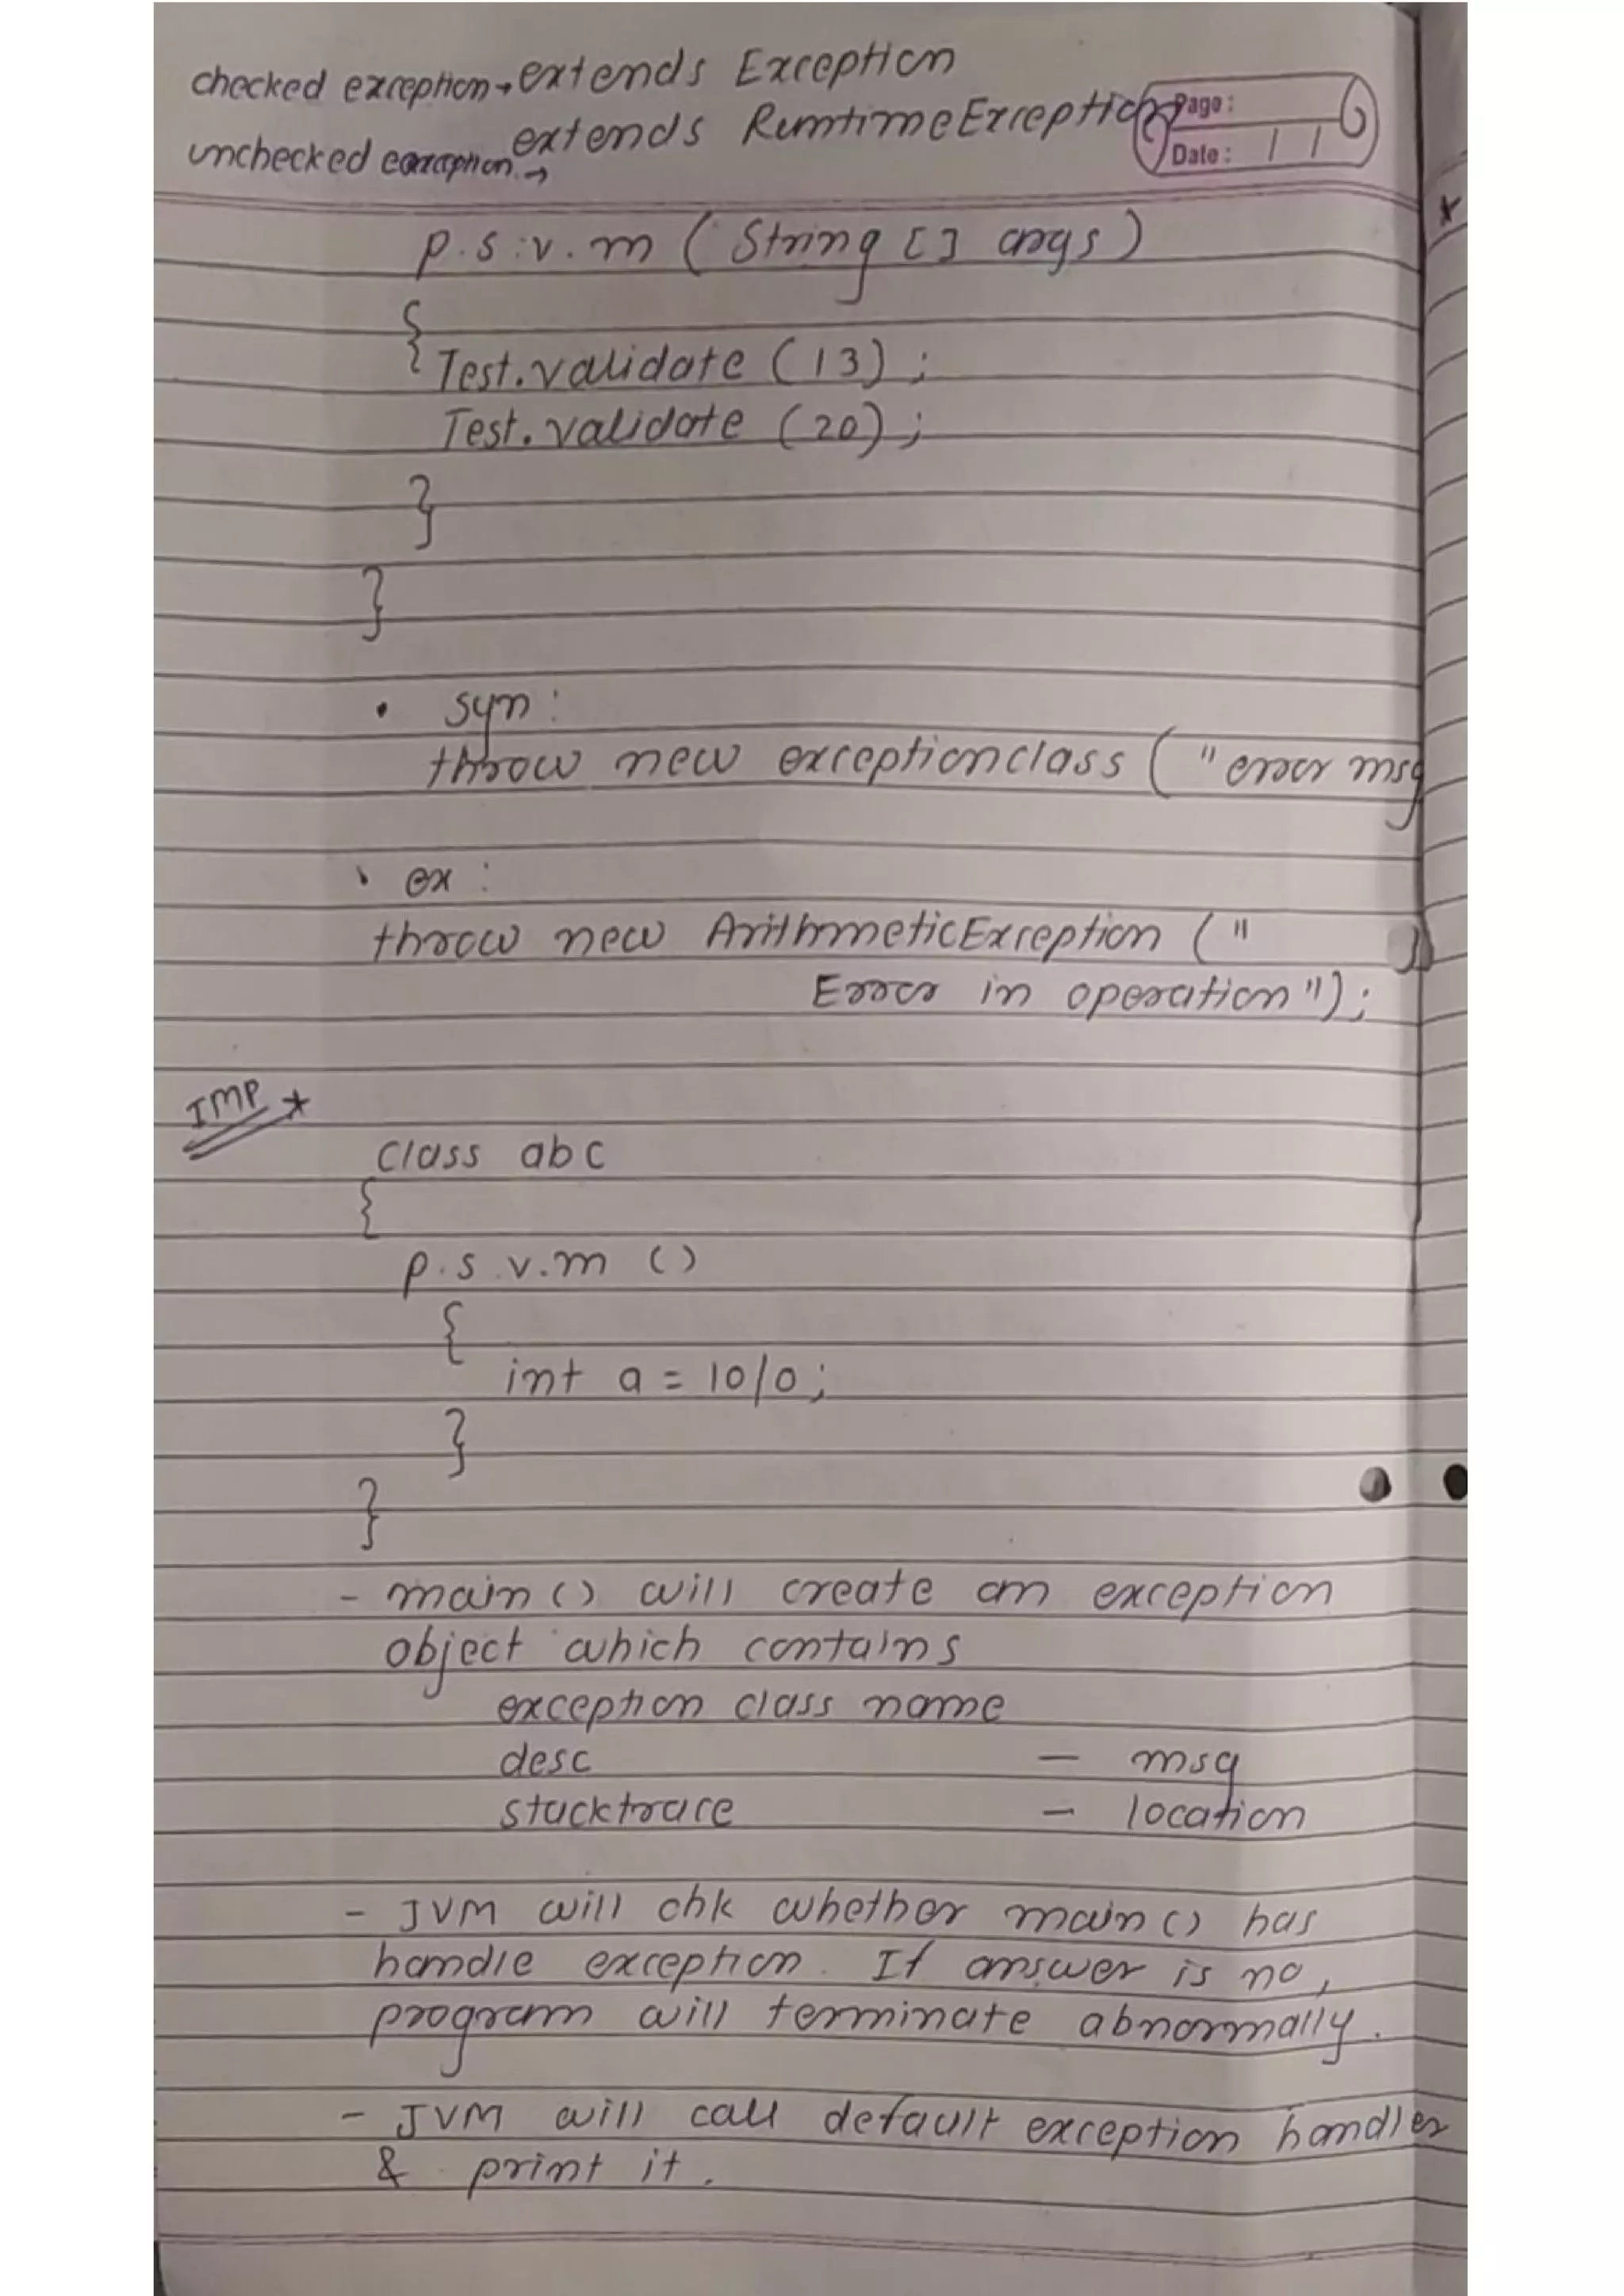 checked exception → extends Exception
unchecked exception → extends RuntimeException
Page:
Date: / /
p.s.v.m ( String [] args )
{
Test.validate (13) ;
Test.validate (20) ;
}
}
• syn :
throw new exceptionclass ( " error msg
• ex :
throw new ArithmeticException ( "
Error in operation " ) ;
IMP *
class abc
{
p.s v.m ()
{
int a = 10/0 ;
}
}
- main () will create an exception
object which contains
exception class name
desc — msg
stacktrace — location
- JVM will chk whether main () has
handle exception. If answer is no,
program will terminate abnormally.
- JVM will call default exception handler
& print it.